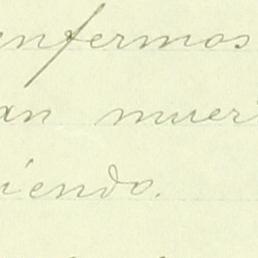 enfermos
an muer
iendo.